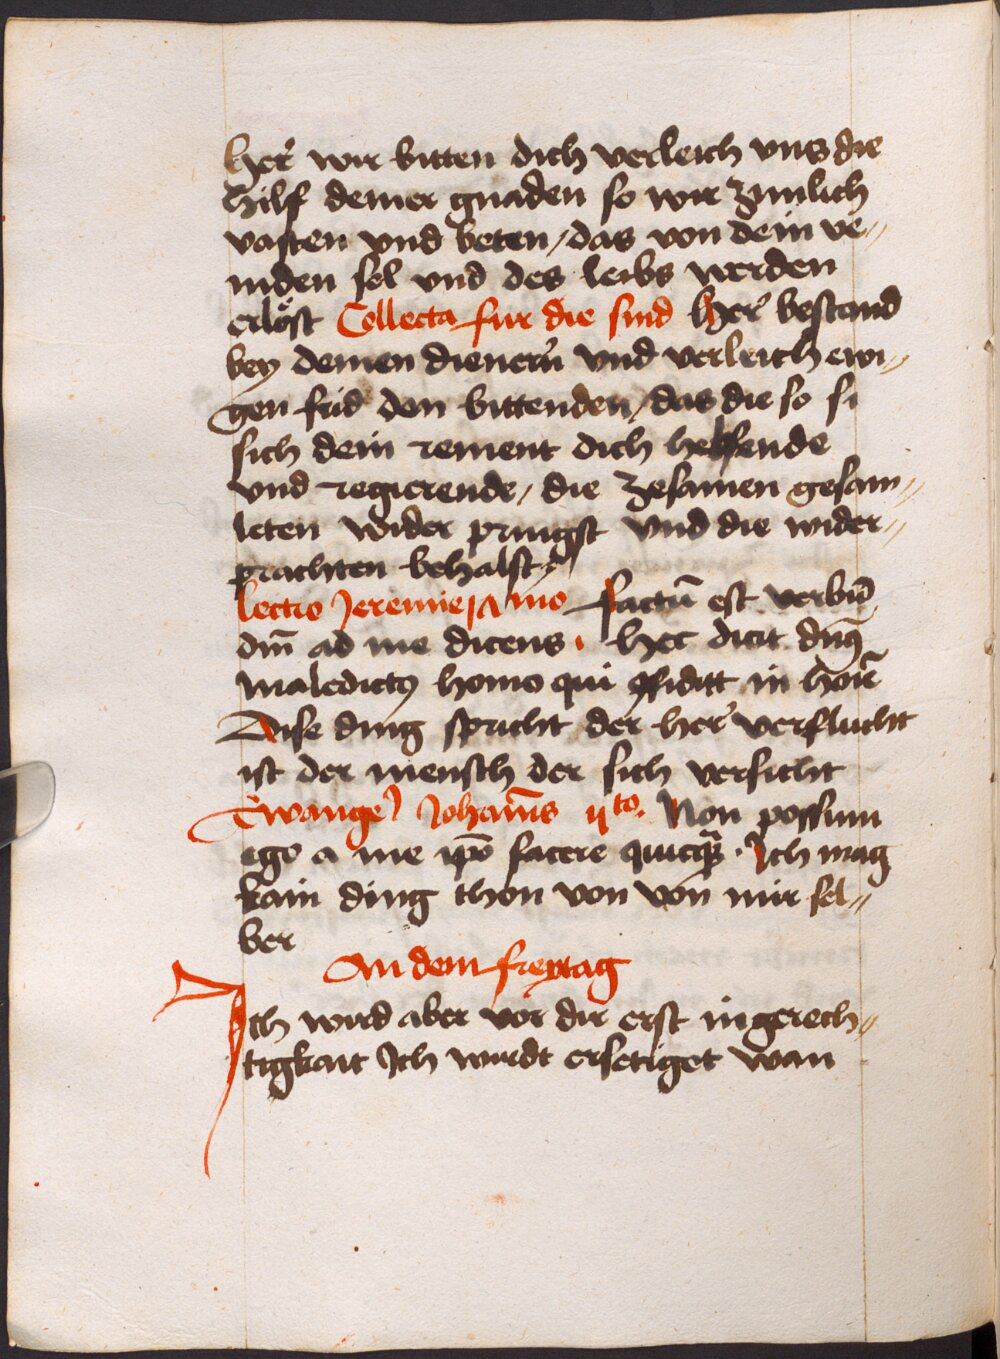 her wir bitten dich verleich vns die
hilf deiner gnaden so wir zimlich
vasten vnd beten / das von dein ve„
inden sel vnd des leibs werden
erlöst Collecta fur die sind her bestand
bey deinen dienern vnd verleich ewi„
gen frid den bittenden / das die so si
sich dein rement dich helfende
vnd regierende / die zesamen gesam„
leten wider pringst vnd die wider„
prachten behalst
lectio Jeremie factū est verbū
dm̄ ad me dicens · hec dicit dn̄s
maledictꝯ homo qui ꝯfidit in hoīe
Dise ding spricht der her verflucht
ist der mensch der sich versicht
Ewange) Johan̄is Non possum
ego a me ip̄o facere quicq̄ꝫ · Ich mag
kain ding thon von von mir sel„
ber
An dem freytag
Ich wird aber vor dir erst in gerech„
tigkait Ich wurdt ersetiget wan